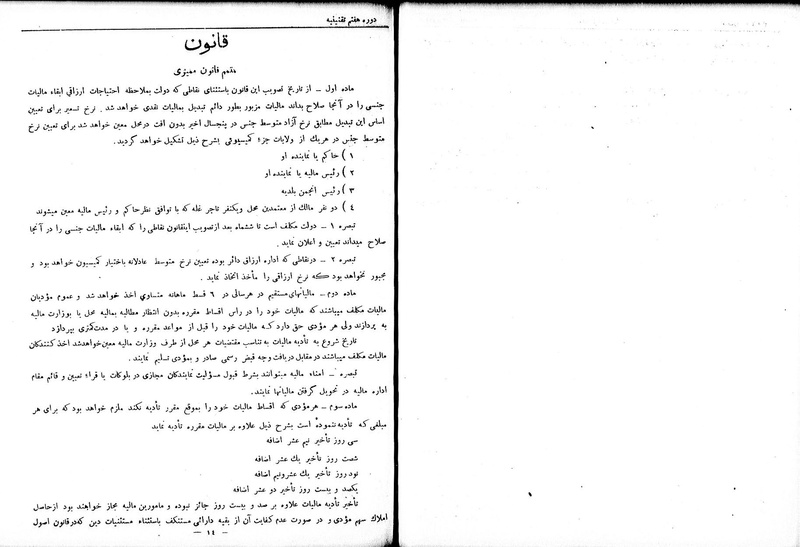 دوره هفتم تقنینیه
قانون
متمم قانون ممیزی
ماده اول ـ از تاریخ تصویب این قانون باستثنای نقاطی که دولت بملاحظه احتیاجات ارزاقی ابقاء مالیات
جنسی را در آنجا صلاح بداند مالیات مزبور بطور دائم تبدیل بمالیات نقدی خواهد شد . نرخ تسعیر برای تعیین
اساس این تبدیل مطابق نرخ آزاد متوسط جنس در پنجسال اخیر بدون آفت در محل معین خواهد شد برای تعیین نرخ
متوسط جنس در هریك از ولایات جزء کمیسیونی بشرح ذیل تشکیل خواهد گردید.
۱ ) حاکم یا نماینده او
۲ ) رئیس مالیه یا نماینده او
۳ ) رئیس انجمن بلدیه
٤ ) دو نفر مالك از معتمدین محل ویکنفر تاجر غله که با توافق نظر حاکم و رئیس مالیه معین میشوند
تبصره ۱ ـ دولت مکلف است تا ششماه بعد ازتصویب اینقانون نقاطی را که ابقاء مالیات جنسی را در آنجا
صلاح میداند تعیین و اعلان نماید .
تبصره ۲ ـ درنقاطی که اداره ارزاق دائر بوده تعیین نرخ متوسط عادلانه باختیار کمیسیون خواهد بود و
مجبور نخواهد بود که نرخ ارزاقی را مأخذ اتخاذ نماید .
ماده دوم ـ مالیاتهای مستقیم در هرسالی در ٦ قسط ماهانه متساوی اخذ خواهد شد و عموم مؤدیان
مالیات مکلف میباشند که مالیات خود را در راس اقساط مقرره بدون انتظار مطالبه بمالیه محل یا بوزارت مالیه
به پردازند ولی هر مؤدی حق دارد که مالیات خود را قبل از مواعد مقرره و یا در مدت کمتری بپردازد
تاریخ شروع به تأدیه مالیات به تناسب مقتضیات هر محل از طرف وزارت مالیه معین خواهدشد اخذ کنندگان
مالیات مکلف میباشند در مقابل دریافت وجه قبض رسمی صادر و بمؤدی تسلیم نمایند .
تبصره ـ امناء مالیه میتوانند بشرط قبول مسؤلیت نمایندگان مجازی در بلوکات یا قراء تعیین و قائم مقام
اداره مالیه در تحویل گرفتن مالیاتها نمایند.
ماده سوم ـ هر مؤدی که اقساط مالیات خود را بموقع مقرر تأدیه نکند ملزم خواهد بود که برای هر
مبلغی که تأدیه ننموده است بشرح ذیل علاوه بر مالیات مقرره تأدیه نماید
سی روز تأخیر نیم عشر اضافه
شصت روز تأخیر یك عشر اضافه
نود روز تأخیر یك عشرونیم اضافه
یکصد و بیست روز تأخیر دو عشر اضافه
تأخیر تأدیه مالیات علاوه بر صد و بیست روز جائز نبوده و مامورین مالیه مجاز خواهند بود ازحاصل
املاك سهم مؤدی و در صورت عدم کفایت آن از بقیه دارائی مستنکف باستثناء مستثنیات دین که درقانون اصول
— ۱٤ —